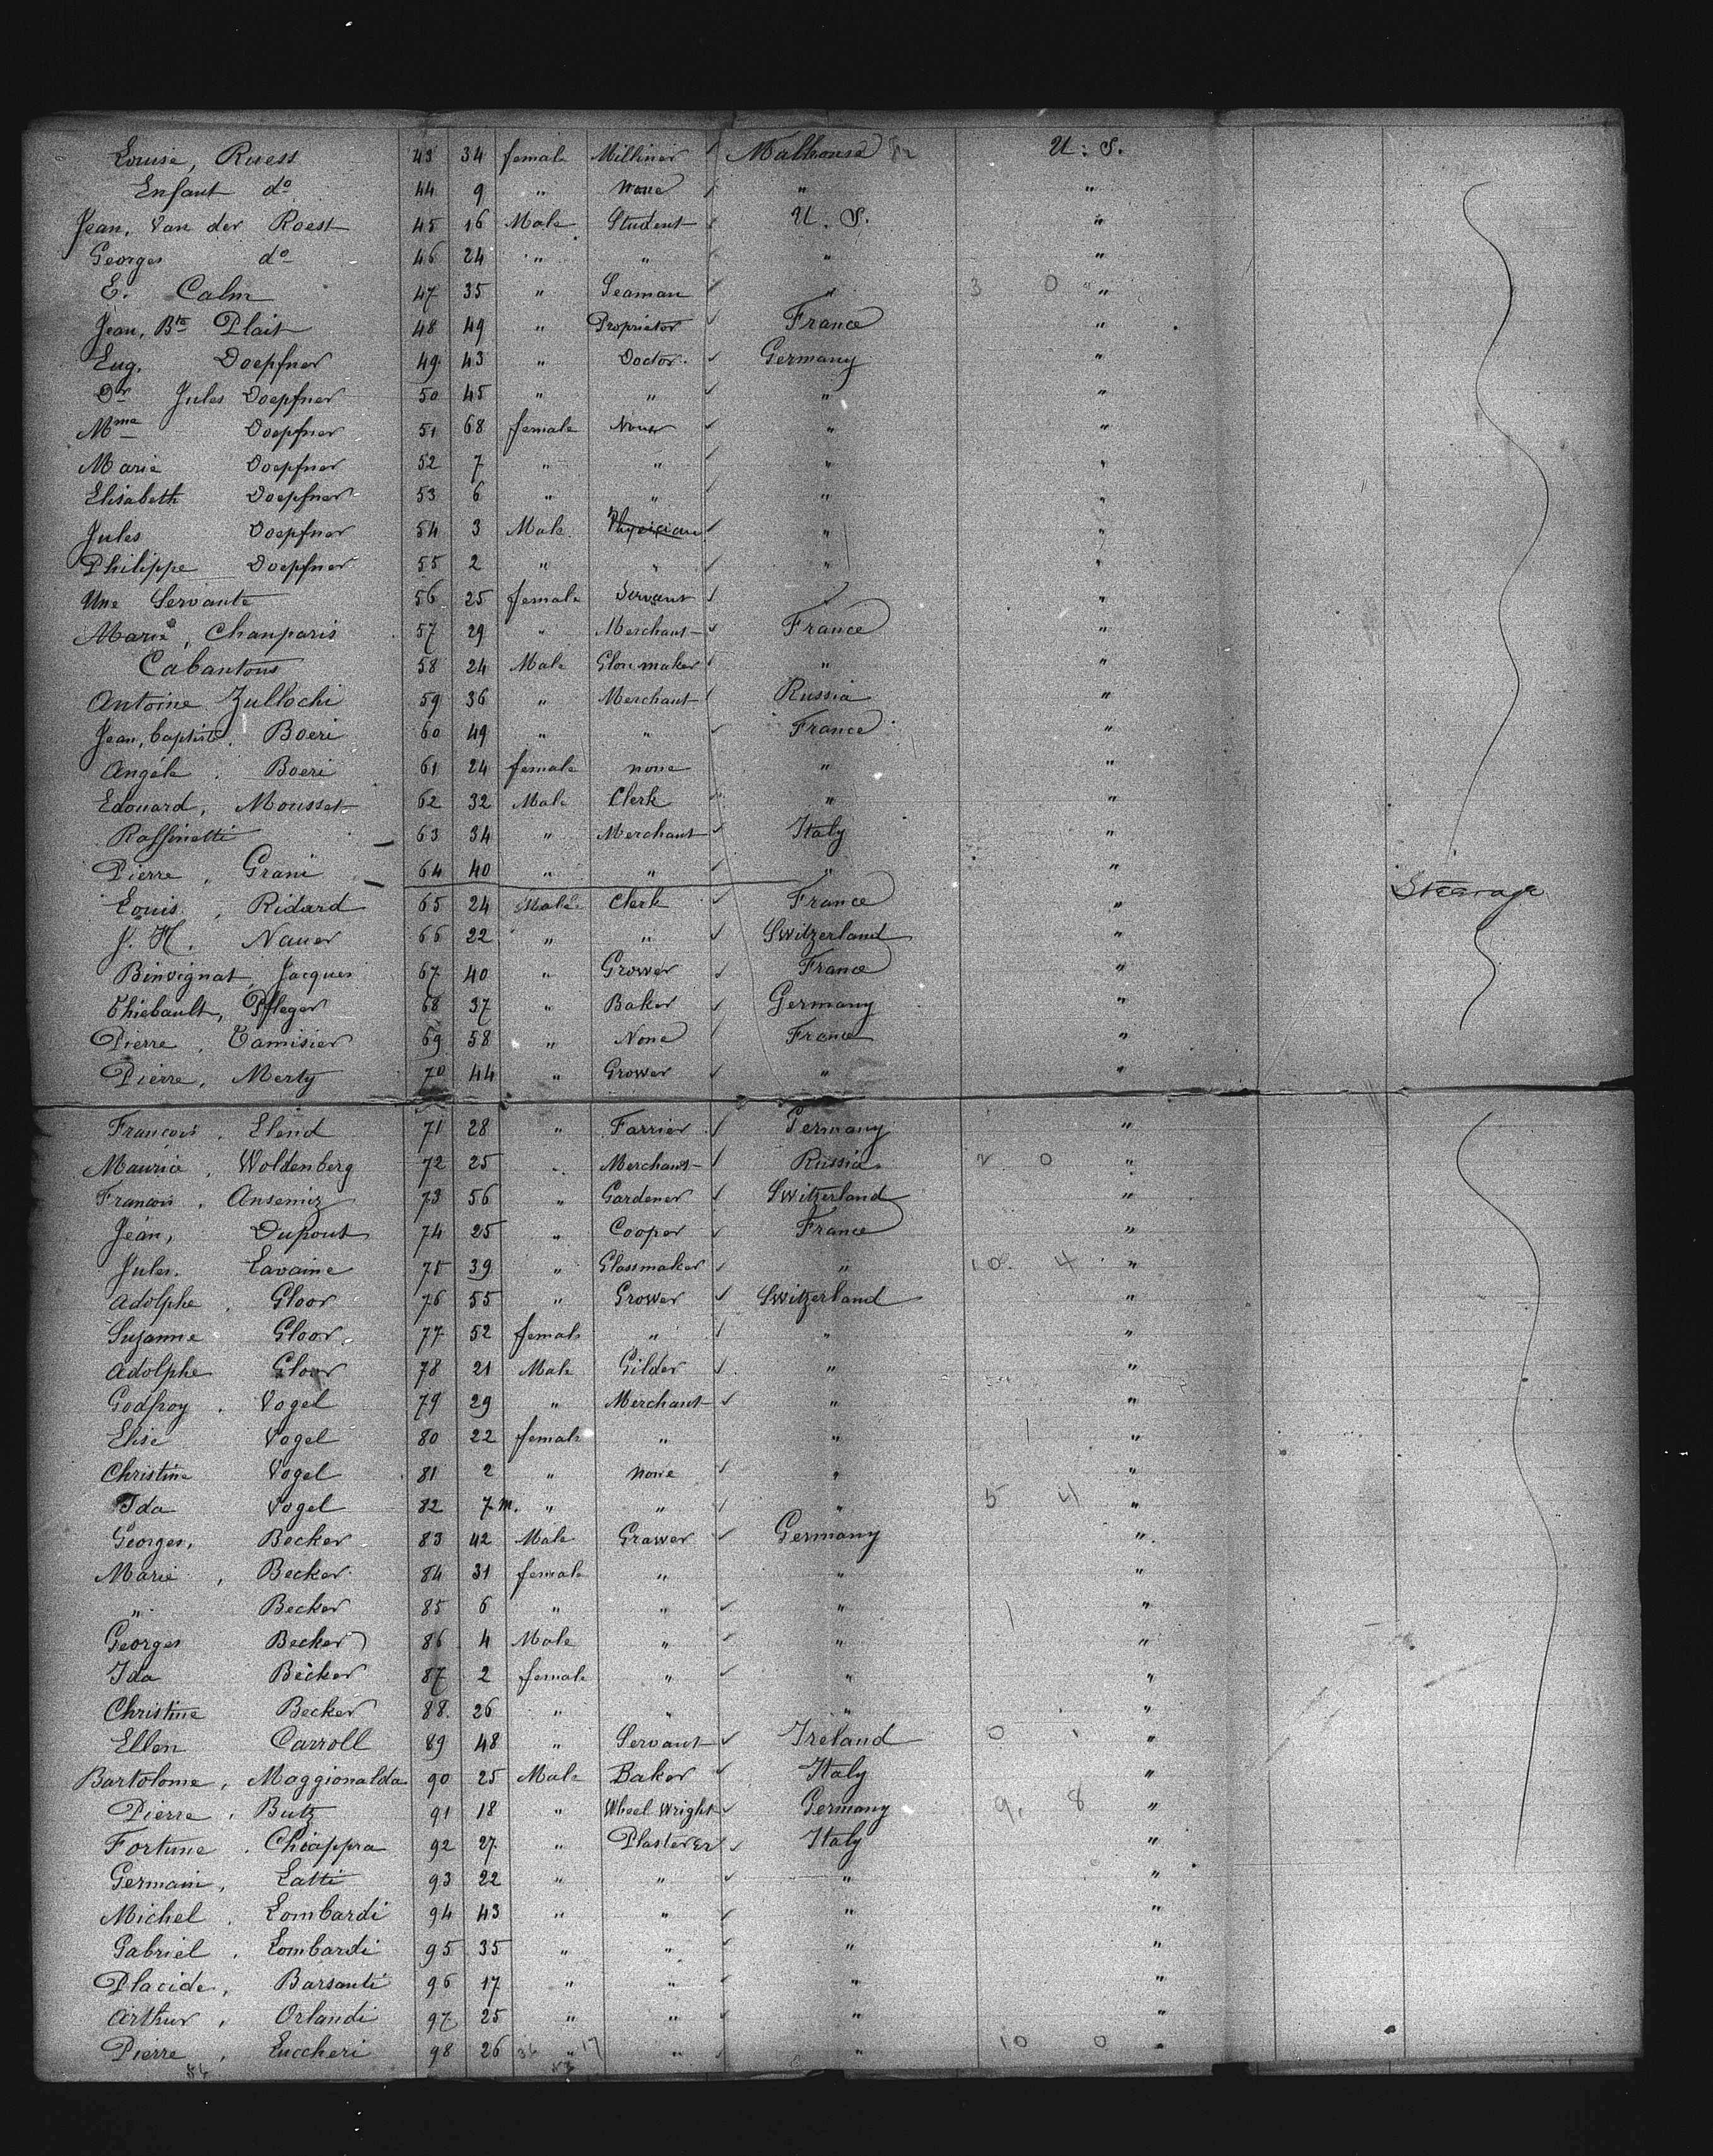 Louise, Ruess 43 34 female Milliner Malhouse U. S.
Enfant do 44 9 " none " "
Jean, Van der Roest 45 16 Male Student U. S. "
Georges do 46 24 " " " "
E. Calm 47 35 " Seaman " 3 0 "
Jean, Bte Plait 48 49 " Proprietor France "
Eug. Doepfner 49 43 " Doctor Germany "
Dr Jules Doepfner 50 45 " " " "
Mme Doepfner 51 68 female None " "
Marie Doepfner 52 7 " " " "
Elisabeth Doepfner 53 6 " " " "
Jules Doepfner 54 3 Male Physician " "
Philippe Doepfner 55 2 " " " "
Une Servante 56 25 female Servant "
Marie, Chanparis 57 29 " Merchant France "
Cabantous 58 24 Male Glovmaker " "
Antoine Zullochi 59 36 " Merchant Russia "
Jean, baptiste. Boeri 60 49 " " France "
Angéle. Boeri 61 24 female none " "
Edouard, Mousset 62 32 Male Clerk " "
Raffinetti 63 34 " Merchant Italy "
Pierre, Grani 64 40 " " " "
Louis, Ridard 65 24 Male Clerk France " Steerage
J. H. Nauer 66 22 " " Switzerland "
Binvignat, Jacques 67 40 " Grower France "
Thiebault, Pfleger 68 37 " Baker Germany "
Pierre, Tamisier 69 58 " None France "
Pierre, Merty 70 44 " Grower " "
Francois, Elend 71 28 " Farrier Germany "
Maurice, Woldenberg 72 25 " Merchant Russia 2 0 "
Francois, Ansemiz 73 56 " Gardener Switzerland "
Jean, Dupont 74 25 " Cooper France "
Jules. Lavaine 75 39 " Glassmaker " 10 4 "
Adolphe, Gloor 76 55 " Grower Switzerland "
Suzanne Gloor 77 52 female " " "
Adolphe Gloor 78 21 Male Gilder " "
Godfroy. Vogel 79 29 " Merchant " "
Elise Vogel 80 22 female " " "
Christine Vogel 81 2 " none " "
Ida Vogel 82 7 m. " " " 5 4 "
Georges, Becker 83 42 Male Grower Germany "
Marie, Becker 84 31 female " " "
" Becker 85 6 " " " "
Georges Becker 86 4 Male " " "
Ida Becker 87 2 female " " "
Christine Becker 88. 26 " " " "
Ellen Carroll 89 48 " Servant Ireland 0 "
Bartolome, Maggionalda 90 25 Male Baker Italy "
Pierre. Butz 91 18 " Wheel Wright Germany 9. 8 "
Fortune. Chiappra 92 27 " Plasterer Italy "
Germain, Latti 93 22 " " " "
Michel. Lombardi 94 43 " " " "
Gabriel. Lombardi 95 35 " " " "
Placide, Barsanti 96 17 " " " "
Arthur, Orlandi 97 25 " " " "
Pierre, Luccheri 98 26 " 17 " " 10 0 "